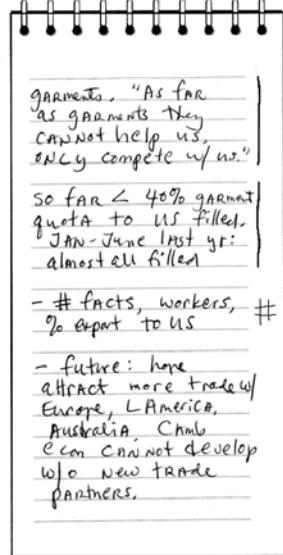 garments. "As far
as garments they
cannot help us,
only compete w/ us."
So far < 40% garment
quota to US filled.
Jan-June last yr:
almost all filled
- # facts, workers, #
% export to US
- future: hope
attract more trade w/
Europe, LAmerica,
Australia. Camb
econ cannot develop
w/o new trade
partners.